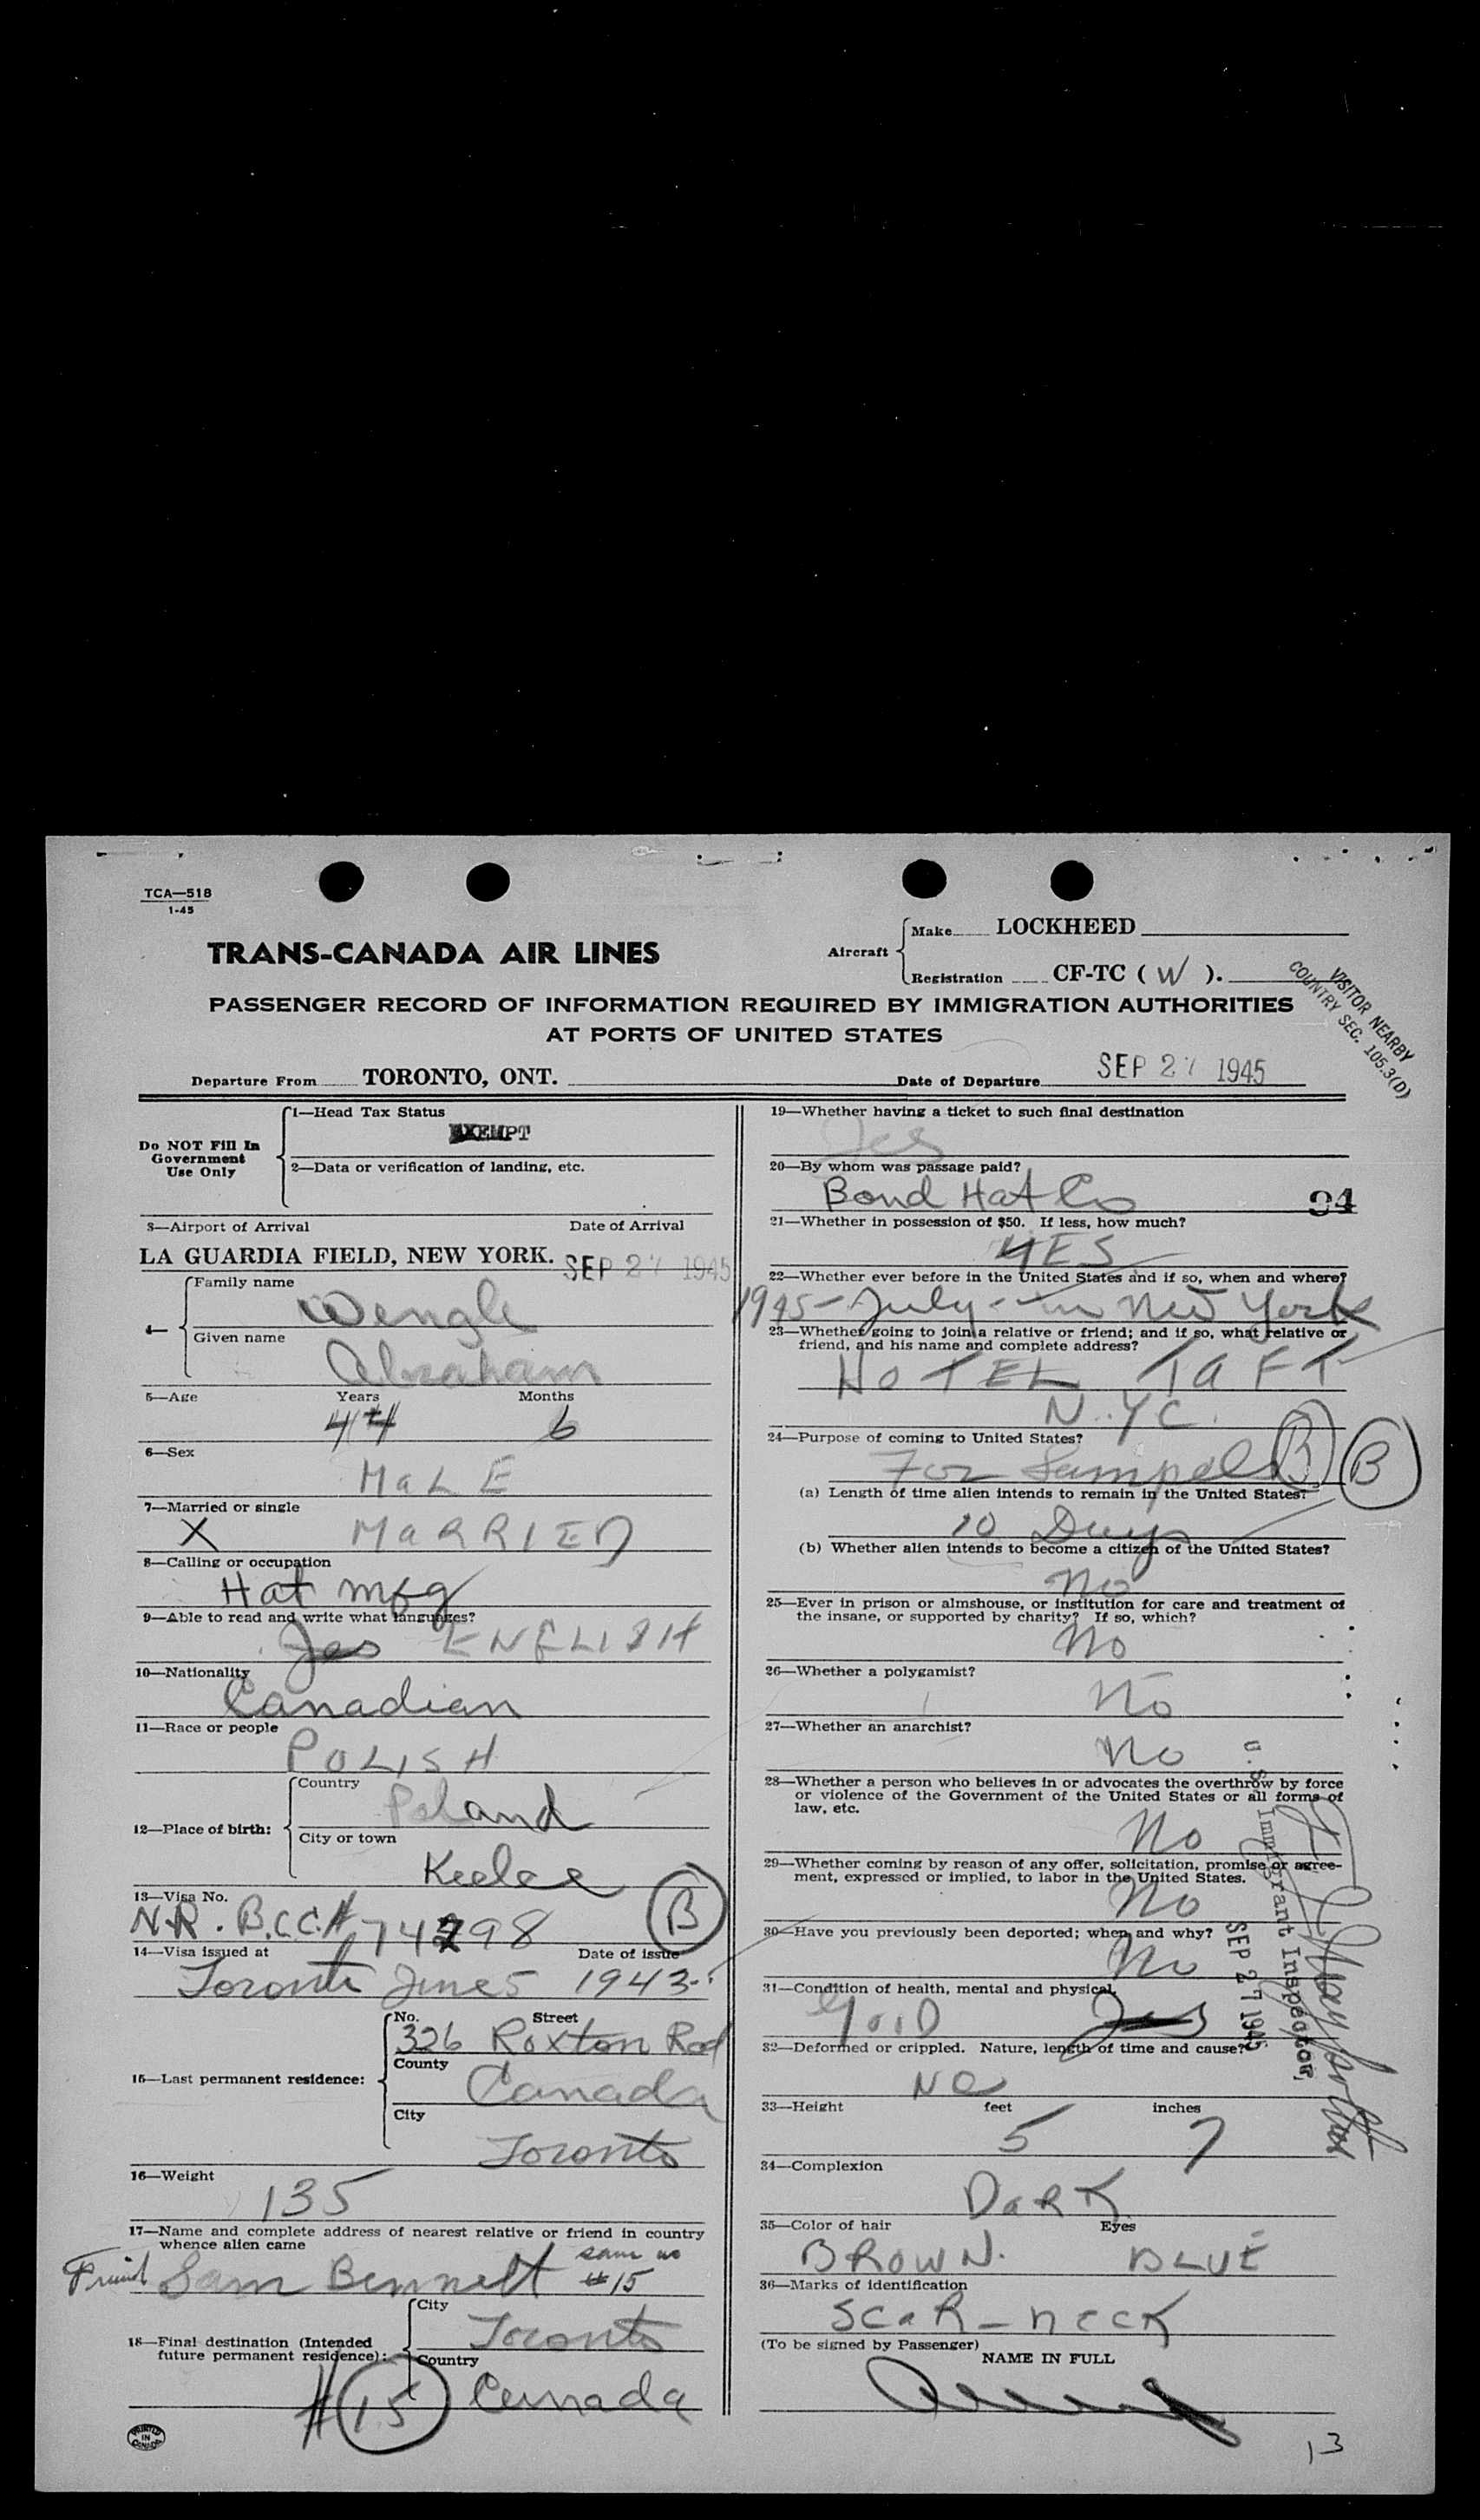 TCA—518
1-45
TRANS-CANADA AIR LINES
Aircraft
Make LOCKHEED
Registration CF-TC ( W ).
VISITOR NEARBY
COUNTRY SEC. 105.3(D)
PASSENGER RECORD OF INFORMATION REQUIRED BY IMMIGRATION AUTHORITIES
AT PORTS OF UNITED STATES
Departure From TORONTO, ONT. Date of Departure SEP 27 1945
Do NOT Fill In
Government
Use Only
1—Head Tax Status
EXEMPT
2—Data or verification of landing, etc.
3—Airport of Arrival Date of Arrival
LA GUARDIA FIELD, NEW YORK. SEP 27 1945
4—
Family name
Wengle
Given name
Abraham
5—Age Years Months
44 6
6—Sex
MaLE
7—Married or single
X MaRRIED
8—Calling or occupation
Hat mfg
9—Able to read and write what languages?
Yes ENGLISH
10—Nationality
Canadian
11—Race or people
POLISH
12—Place of birth:
Country
Poland
City or town
Keelce
13—Visa No.
N.R. B.C.C.# 74298 B
14—Visa issued at Date of issue
Toronto June 5 1943
15—Last permanent residence:
No. Street
326 Roxton Rod
County
Canada
City
Toronto
16—Weight
135
17—Name and complete address of nearest relative or friend in country
whence alien came
Friend Sam Bennett same as
#15
18—Final destination (Intended
future permanent residence):
City
Toronto
Country
#15 Canada
PRINTED
IN
CANADA
19—Whether having a ticket to such final destination
Yes
20—By whom was passage paid?
Bond Hat Co
94
21—Whether in possession of $50. If less, how much?
YES
22—Whether ever before in the United States and if so, when and where?
1945 - July - in New York
23—Whether going to join a relative or friend; and if so, what relative or
friend, and his name and complete address?
HOTEL TaFT
N.YC.
24—Purpose of coming to United States?
For Sampels B B
(a) Length of time alien intends to remain in the United States?
10 Days
(b) Whether alien intends to become a citizen of the United States?
no
25—Ever in prison or almshouse, or institution for care and treatment of
the insane, or supported by charity? If so, which?
No
26—Whether a polygamist?
No
27—Whether an anarchist?
No
28—Whether a person who believes in or advocates the overthrow by force
or violence of the Government of the United States or all forms of
law, etc.
No
29—Whether coming by reason of any offer, solicitation, promise or agree-
ment, expressed or implied, to labor in the United States.
No
30—Have you previously been deported; when and why?
No
31—Condition of health, mental and physical
GooD Yes
32—Deformed or crippled. Nature, length of time and cause?
No
33—Height feet inches
5 7
34—Complexion
DaRK
35—Color of hair Eyes
BROWN. BLUE
36—Marks of identification
SCaR - NECK
(To be signed by Passenger)
NAME IN FULL
U.S. Immigrant Inspector,
SEP 27 1945
13